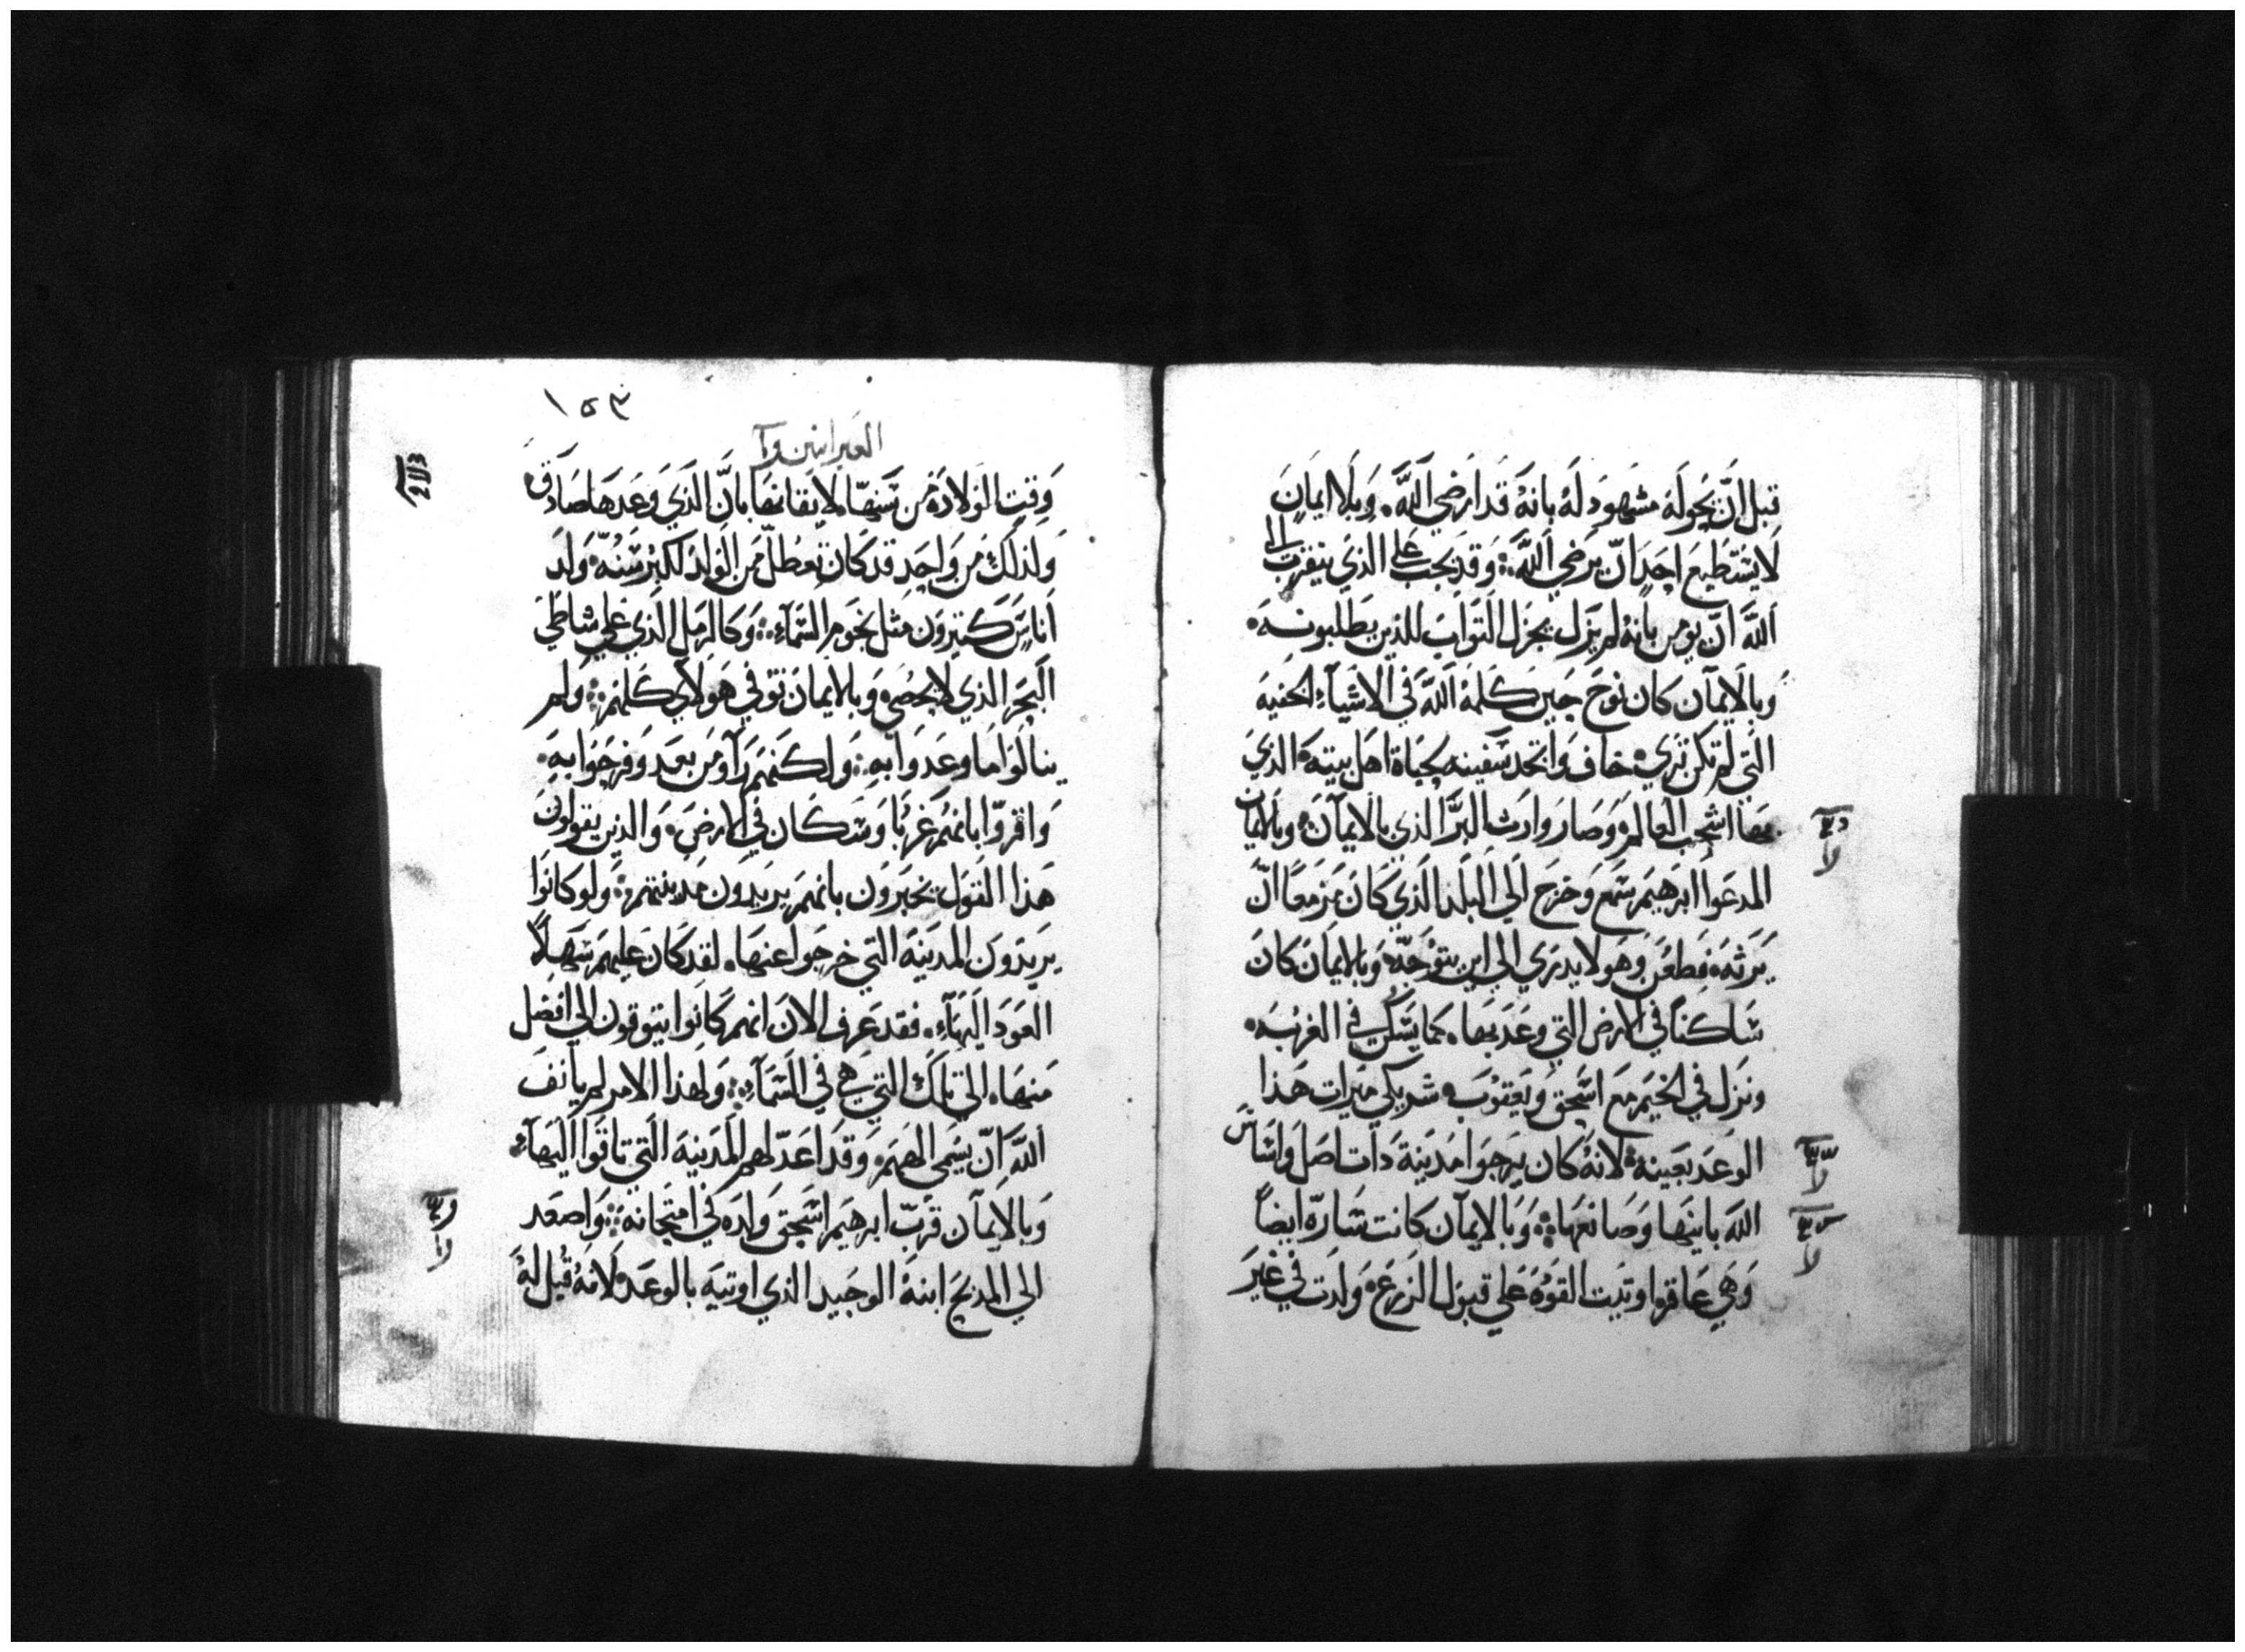 قبل ان يحوله مشهود له بانه قد ارضي الله. وبلا ايمان
لا يستطيع احد ان يرضي الله؞ وقد يجب علي الذي يتقرب الى
الله ان يومن بانه لم يزل يجزل التواب للذين يطلبونه.
وبالايمان كان نوح حين كلمه الله في الاشياء الخفيه
التي لم تكن تري. خاف واتخد سفينه لحياة اهل بيته. الذي
بها اشجب العالم. وصار وارث البر الذي بالايمان. وبالايمان
المدعوا ابرهيم سمع وخرج الي البلد الذي كان مزمعا ان
يرثه. فظعن وهو لا يدري الي اين يتوجه. وبالايمان كان
ساكنا في الارض التي وعد بها. كما يسكن في الغربه.
ونزل في الخيم مع اسحق ويعقوب. شريكي ميرات هذا
الوعد بعينه. لانه كان يرجوا مدينة دات اصل واساس
الله بانيها وصانعها؞ وبالايمان كانت ساره ايضا
وهي عاقر. اوتيت القوه علي قبول الزرع. وولدت في غير
١٥٣
العبرانيين
وقت الولاده من سنها. لايقانها بان الذي وعدها صادق
ولذلك من واحد قد كان تعطل من الوالد لكبر سنه. ولد
اناس كتيرون متل نجوم السماء؞ وكالرمل الذي علي شاطي
البحر الذي لا يحصي. وبالايمان توفي هولاي كلهم؞ ولم
ينالوا ما وعدوا به؞ ولكنهم راوه من بعد وفرحوا به.
واقروا بانهم غربا وسكان في الارض. والذين يقولون
هذا القول يخبرون بانهم يريدون مدينتهم؞ ولو كانوا
يريدون المدينه التي خرجوا عنها. لقد كان عليهم سهلا
العود اليها. فقد عرف الان انهم كانوا يتوقون الي افضل
منها. الي تلك التي هي في السماء؞ ولهذا الامر لم يانف
الله ان يسمي الههم. وقد اعد لهم المدينه التي تاقوا اليها.
وبالايمان قرب ابرهيم اسحق ولده في امتحانه؞ واصعد
الي المدبح ابنه الوحيد الذي اوتيه بالوعد. لانه قيل له